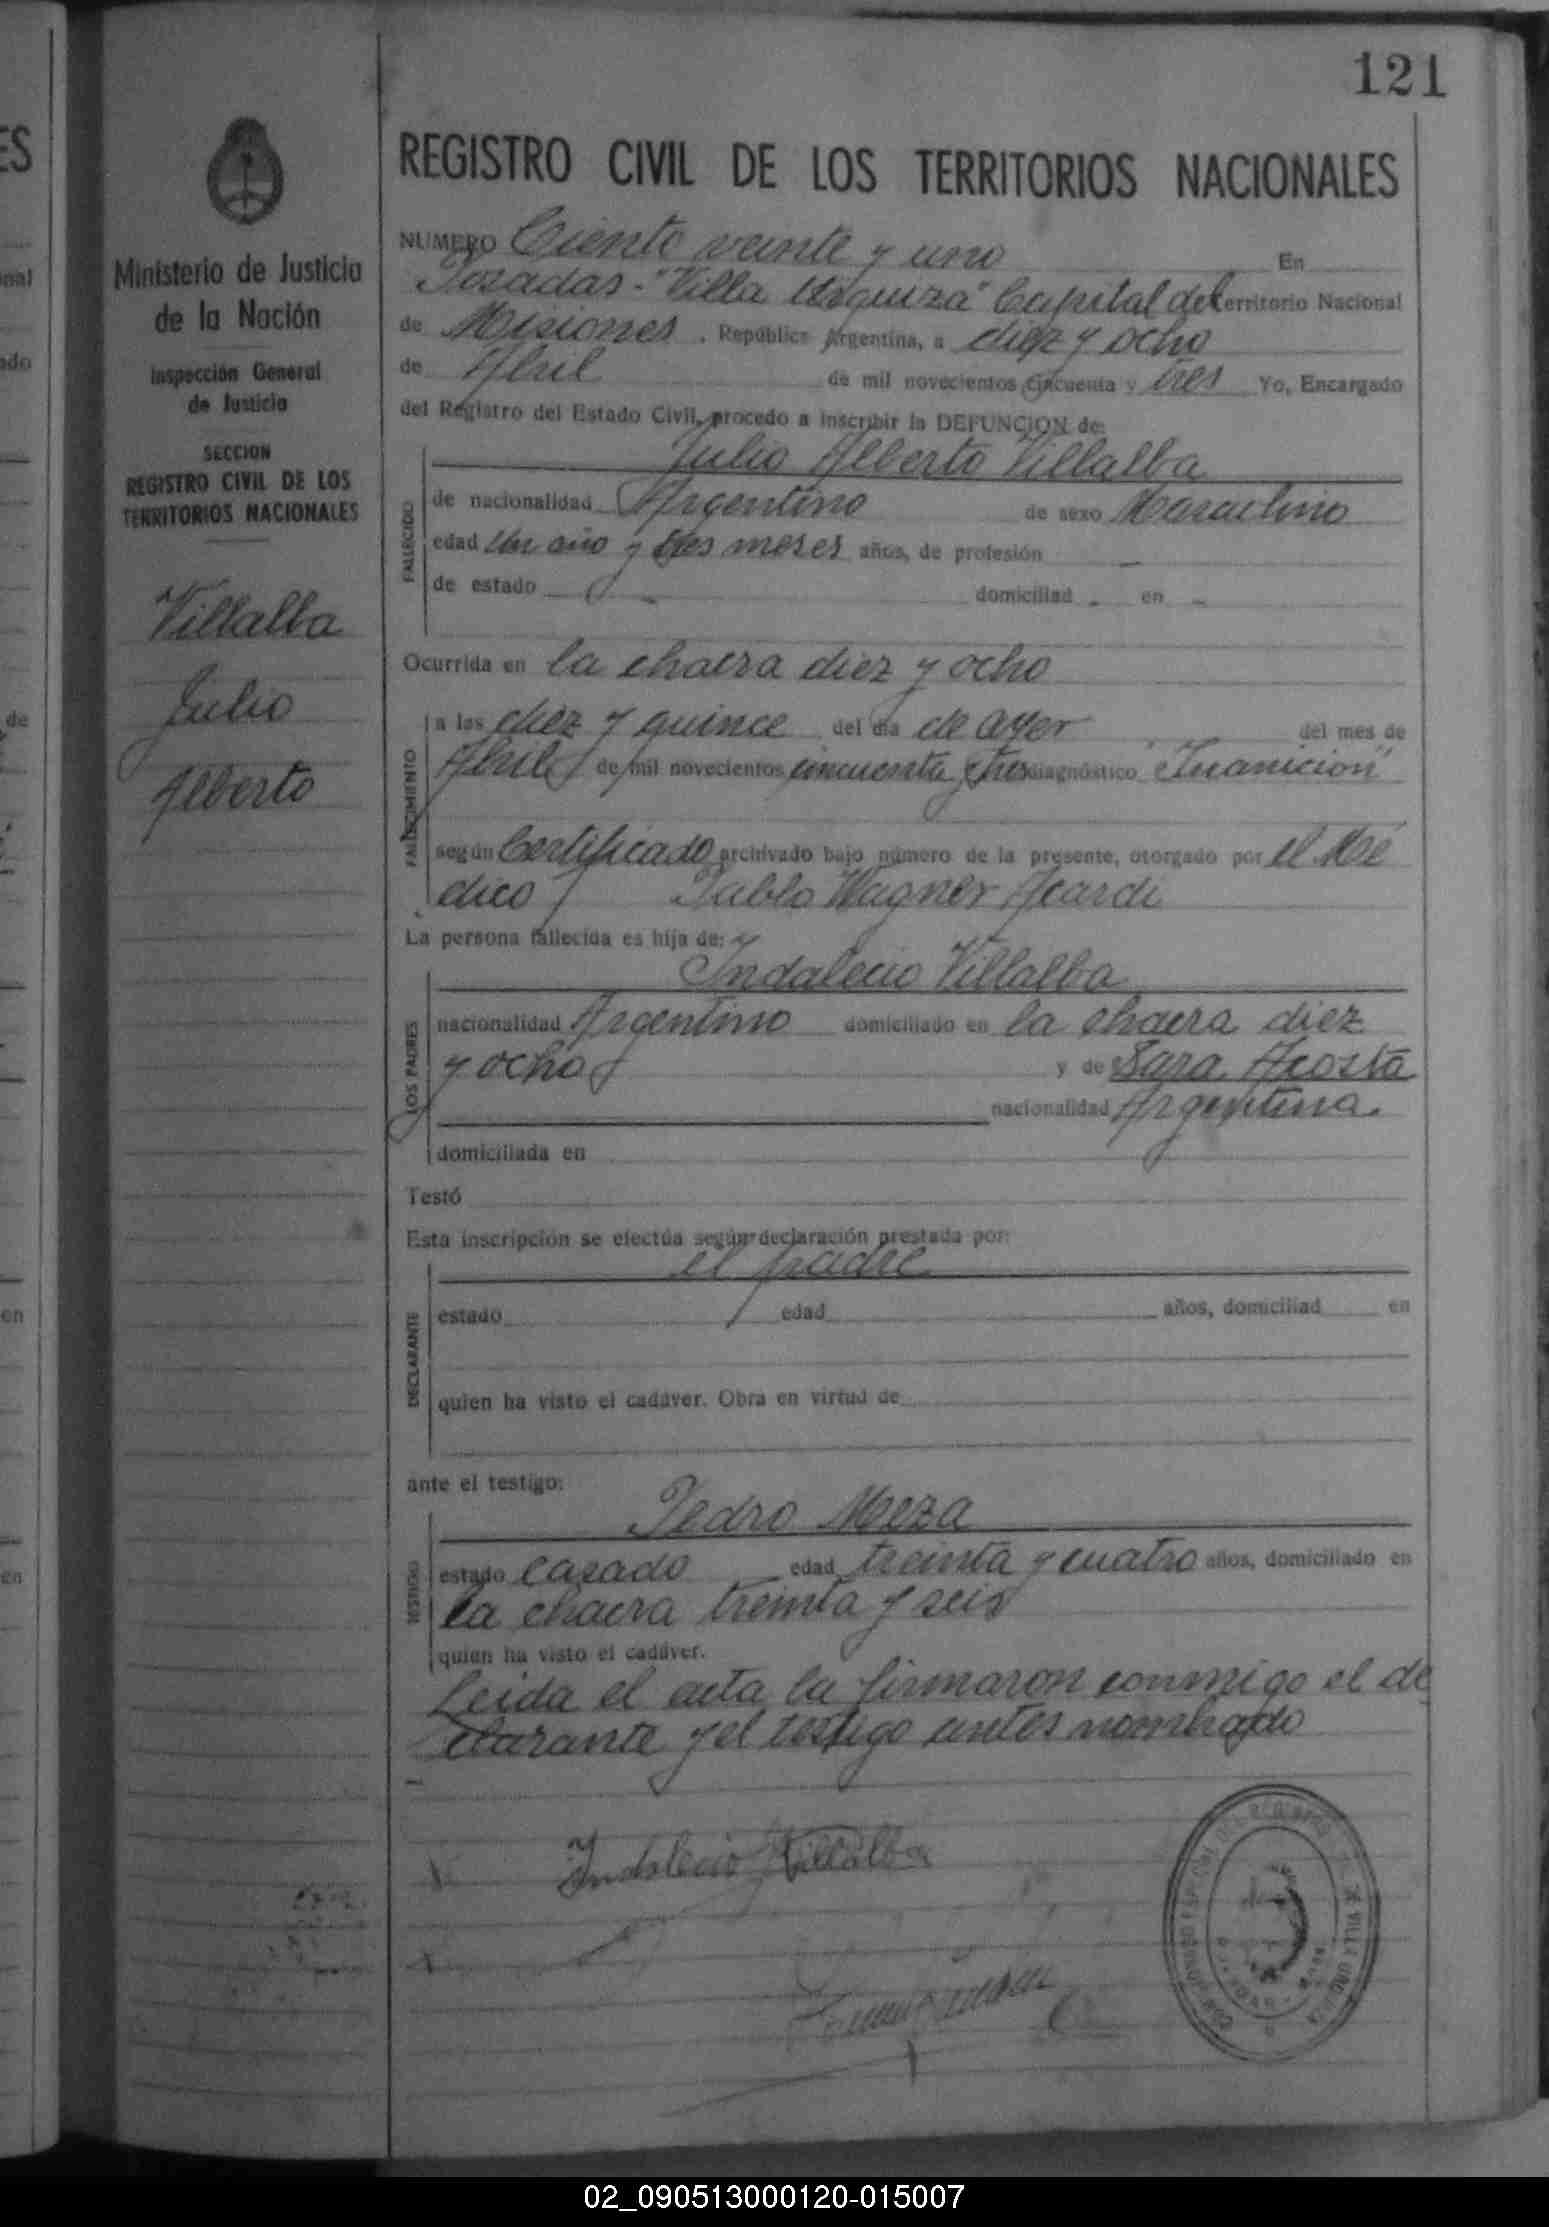 121
REGISTRO CIVIL DE LOS TERRITORIOS NACIONALES
Ministerio de Justicia
de la Nación
Inspección General
de Justicia
SECCION
REGISTRO CIVIL DE LOS
TERRITORIOS NACIONALES
Villalba
Julio
Alberto
NUMERO Ciento veinte y uno En
Posadas - "Villa Urquiza" Capital del territorio Nacional
de Misiones. República Argentina, a diez y ocho
de Abril de mil novecientos cincuenta y tres Yo, Encargado
del Registro del Estado Civil, procedo a inscribir la DEFUNCION de:
Julio Alberto Villalba
FALLECIDO
de nacionalidad Argentino de sexo Masculino
edad Un año y tres meses años, de profesión -
de estado - domiciliad - en -
Ocurrida en la chacra diez y ocho
FALLECIMIENTO
a las diez y quince del día de ayer del mes de
Abril de mil novecientos cincuenta y tres diagnóstico "Inanicion"
según Certificado archivado bajo número de la presente, otorgado por el Mé
dico Pablo Wagner Acardi
La persona fallecida es hija de:
Indalecio Villalba
LOS PADRES
nacionalidad Argentino domiciliado en la chacra diez
y ocho y de Sara Acosta
nacionalidad Argentina.
domiciliada en
Testó
Esta inscripción se efectúa según declaración prestada por:
el padre
DECLARANTE
estado edad años, domiciliad en
quien ha visto el cadáver. Obra en virtud de
ante el testigo:
Pedro Meza
TESTIGO
estado casado edad treinta y cuatro años, domiciliado en
La chacra treinta y seis
quien ha visto el cadáver.
Leida el acta la firmaron conmigo el de
clarante y el testigo antes nombrado
Indalecio Villalba
02_090513000120-015007